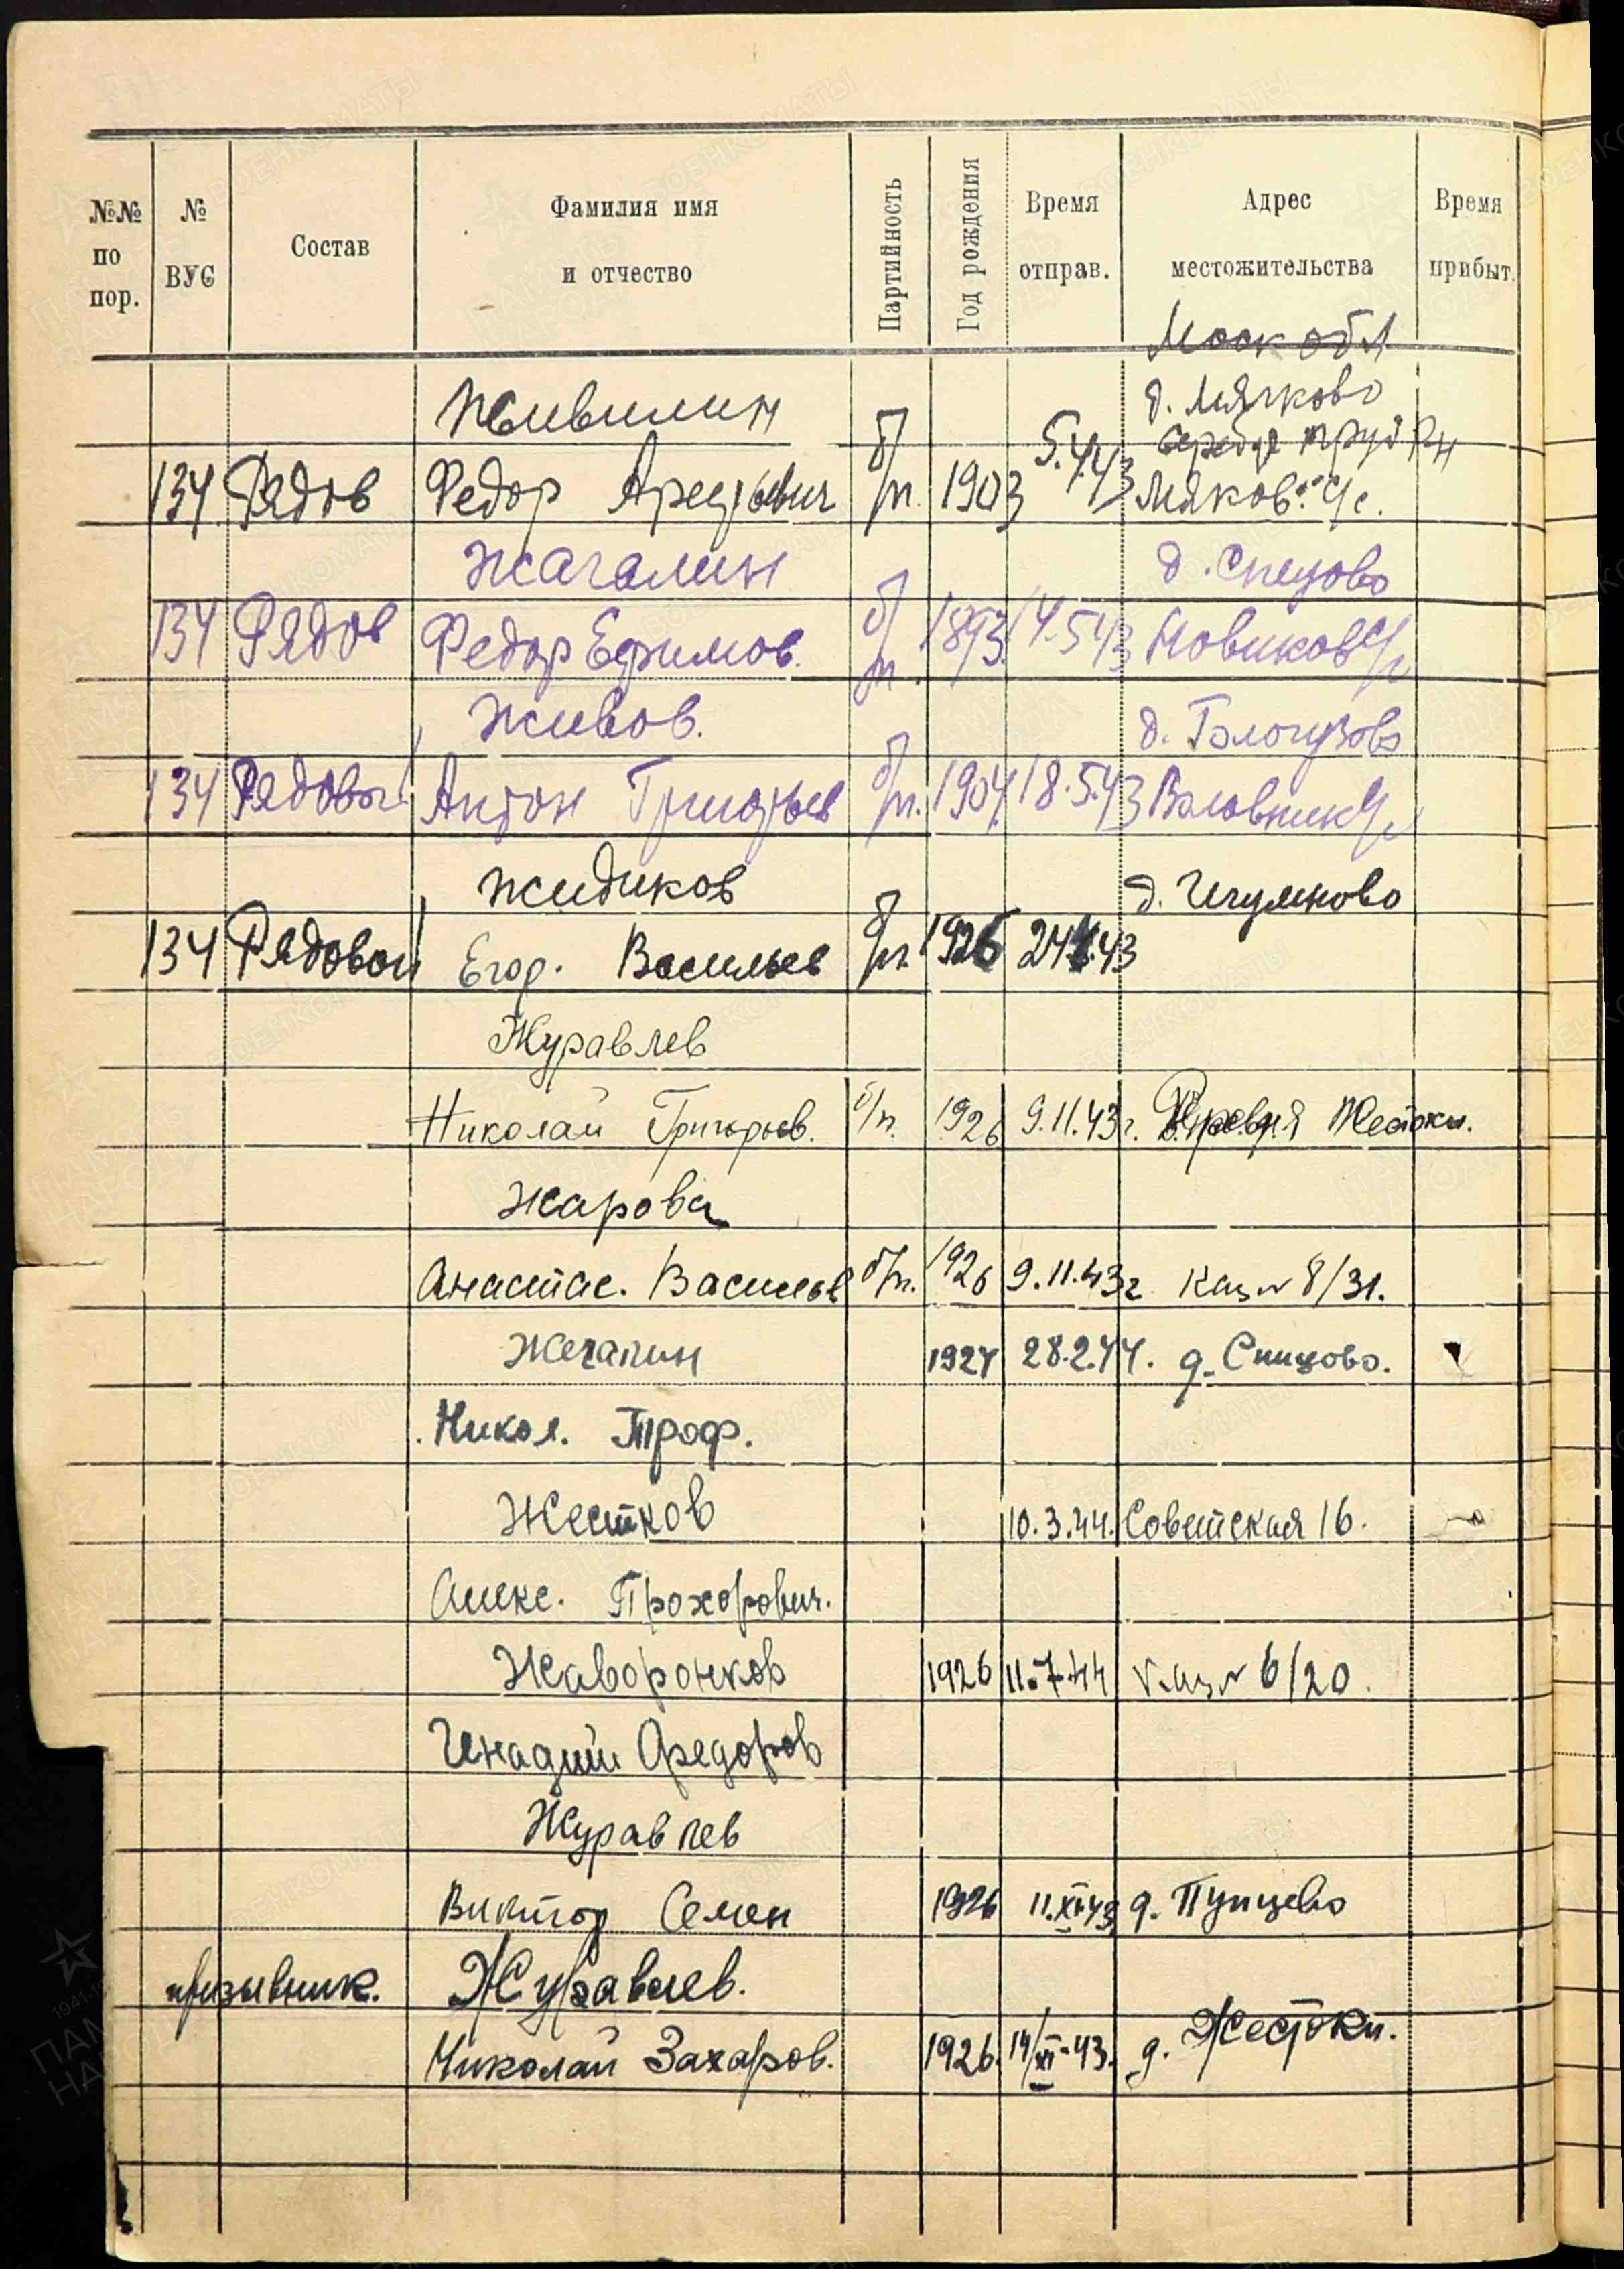 №№ по пор.
№ ВУС
Состав
Фамилия имя и отчество
Партийность
Год рождения
Время отправ.
Адрес местожительства
Время прибыт.
Моск обл
Живилин д. Мячково
134 Рядов Федор б/п. 1903 5.4.43
Жагалин д. Спецово
134 Рядов Федор Ефимов. б/п. 1893 14.5.43 Новиков с/с
Живов. д. Гологузово
134 Рядовой Антон Григорьев б/п. 1904 18.5.43
Жидиков д. Игумново
134 Рядовой Егор. Васильев б/п. 1926 43
Журавлев
Николай Григорьев. б/п. 1926 9.11.43г. Жестоки.
Жарова
Анастас. Васильев б/п. 1926 9.11.43г 8/31.
Жегалин 1927 28.2.44. д. Спицово.
Никол. Троф.
Жестков 10.3.44. Советская 16.
Алекс. Прохорович.
Жаворонков 1926 11.7.44 6/20.
Генадий Федоров
Журавлев
Виктор Семен 1926 11.XI.43 д. Пупцево
призывник. Журавлев.
Николай Захаров. 1926. 14/XI-43. д. Жестоки.